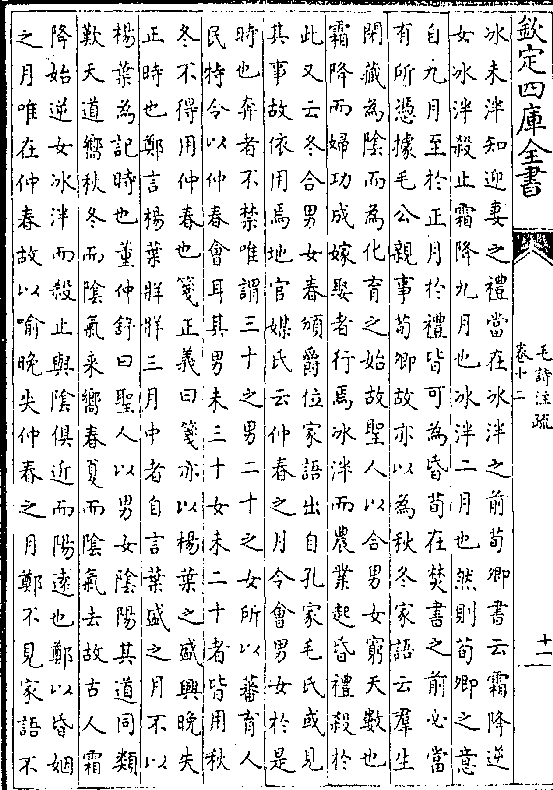 欽定四庫全書
毛詩注疏
卷十二
十一
冰未泮知迎妻之禮當在冰泮之前荀卿書云霜降逆
女冰泮殺止霜降九月也冰泮二月也然則荀卿之意
自九月至於正月於禮皆可為昏荀在焚書之前必當
有所憑據毛公親事荀卿故亦以為秋冬家語云羣生
閉藏為陰而為化育之始故聖人以合男女窮天數也
霜降而婦功成嫁娶者行焉冰泮而農業起昏禮殺於
此又云冬合男女春頒爵位家語出自孔家毛氏或見
其事故依用焉地官媒氏云仲春之月令會男女於是
時也奔者不禁唯謂三十之男二十之女所以蕃育人
民特令以仲春會耳其男未三十女未二十者皆用秋
冬不得用仲春也箋正義曰箋亦以楊葉之盛興晚失
正時也鄭言楊葉牂牂三月中者自言葉盛之月不以
楊葉為記時也董仲舒曰聖人以男女陰陽其道同類
歎天道嚮秋冬而陰氣來嚮春夏而陰氣去故古人霜
降始逆女冰泮而殺止與陰俱近而陽遠也鄭以昏姻
之月唯在仲春故以喻晚失仲春之月鄭不見家語不